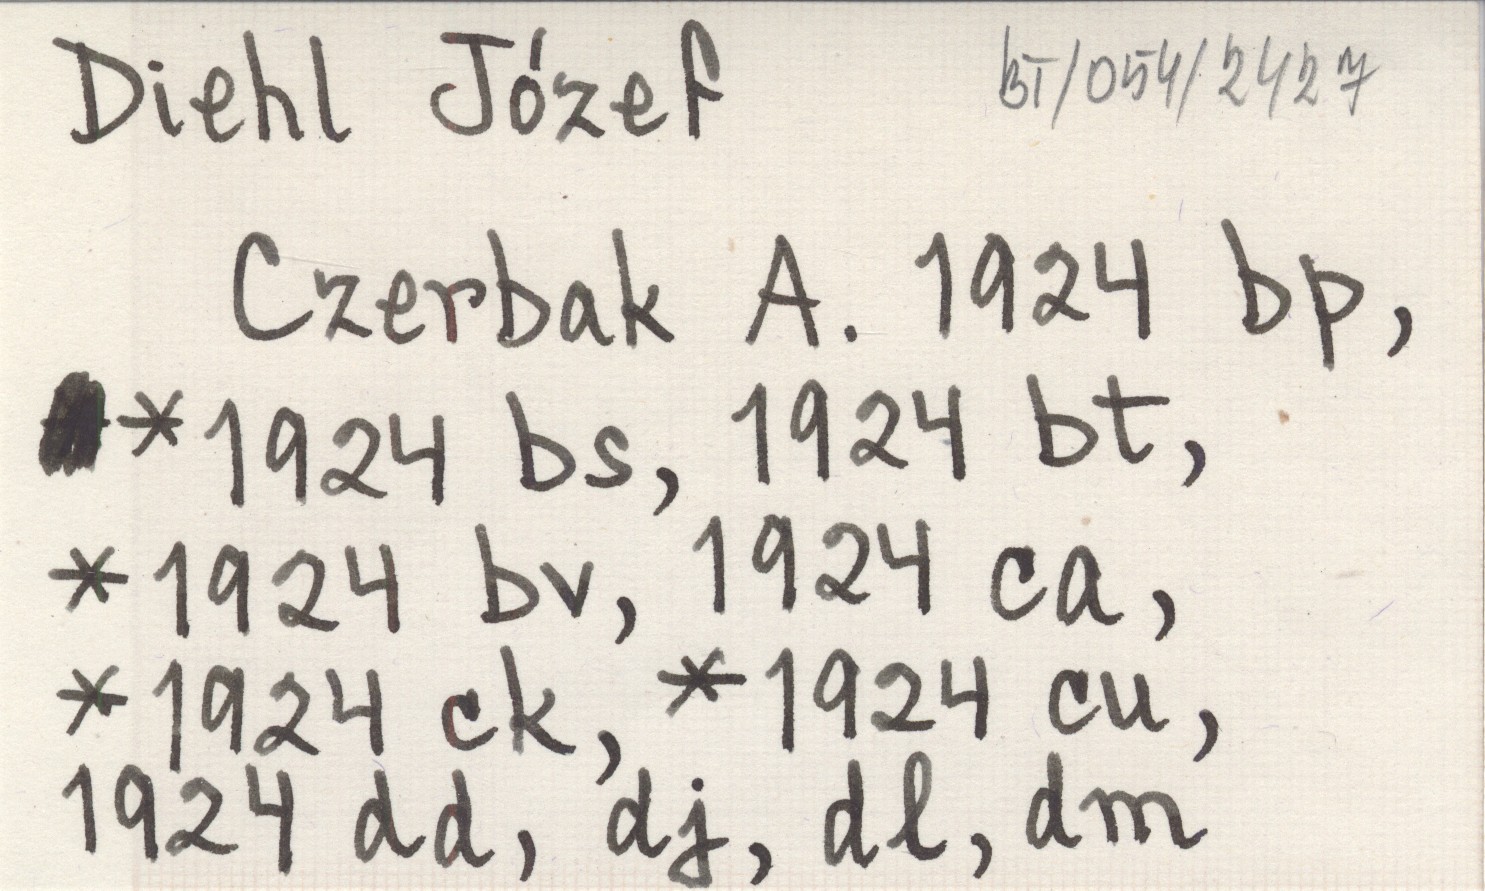 Diehl Józef BT/054/2427
Czerbak A. 1924 bp,
*1924 bs, 1924 bt,
*1924 bv, 1924 ca,
*1924 ck, *1924 cu,
1924 dd, dj, dl, dm